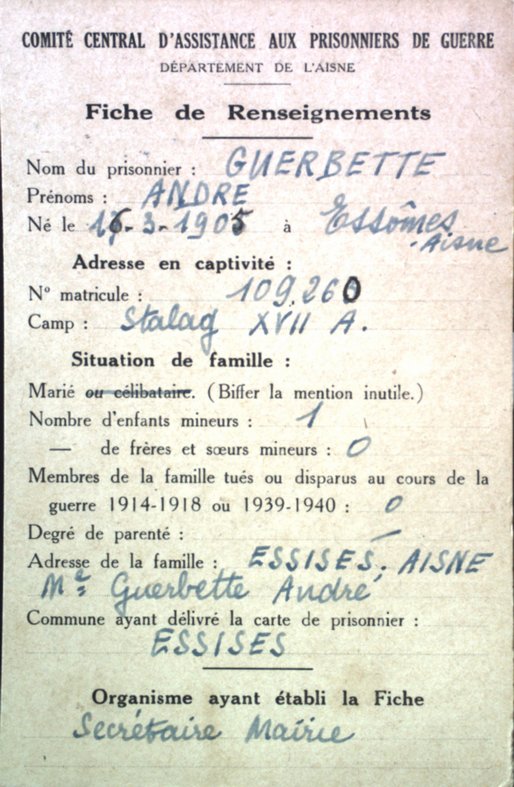 COMITÉ CENTRAL D'ASSISTANCE AUX PRISONNIERS DE GUERRE
DÉPARTEMENT DE L'AISNE
Fiche de Renseignements
Nom du prisonnier : GUERBETTE
Prénoms : ANDRE
Né le 16-3-1905 à Essômes
-Aisne
Adresse en captivité :
N° matricule : 109.260
Camp : Stalag XVII A.
Situation de famille :
Marié ou célibataire. (Biffer la mention inutile.)
Nombre d'enfants mineurs : 1
— de frères et sœurs mineurs : 0
Membres de la famille tués ou disparus au cours de la
guerre 1914-1918 ou 1939-1940 : 0
Degré de parenté : —
Adresse de la famille : ESSISES. AISNE
Me Guerbette André
Commune ayant délivré la carte de prisonnier :
ESSISES
Organisme ayant établi la Fiche
Secrétaire Mairie